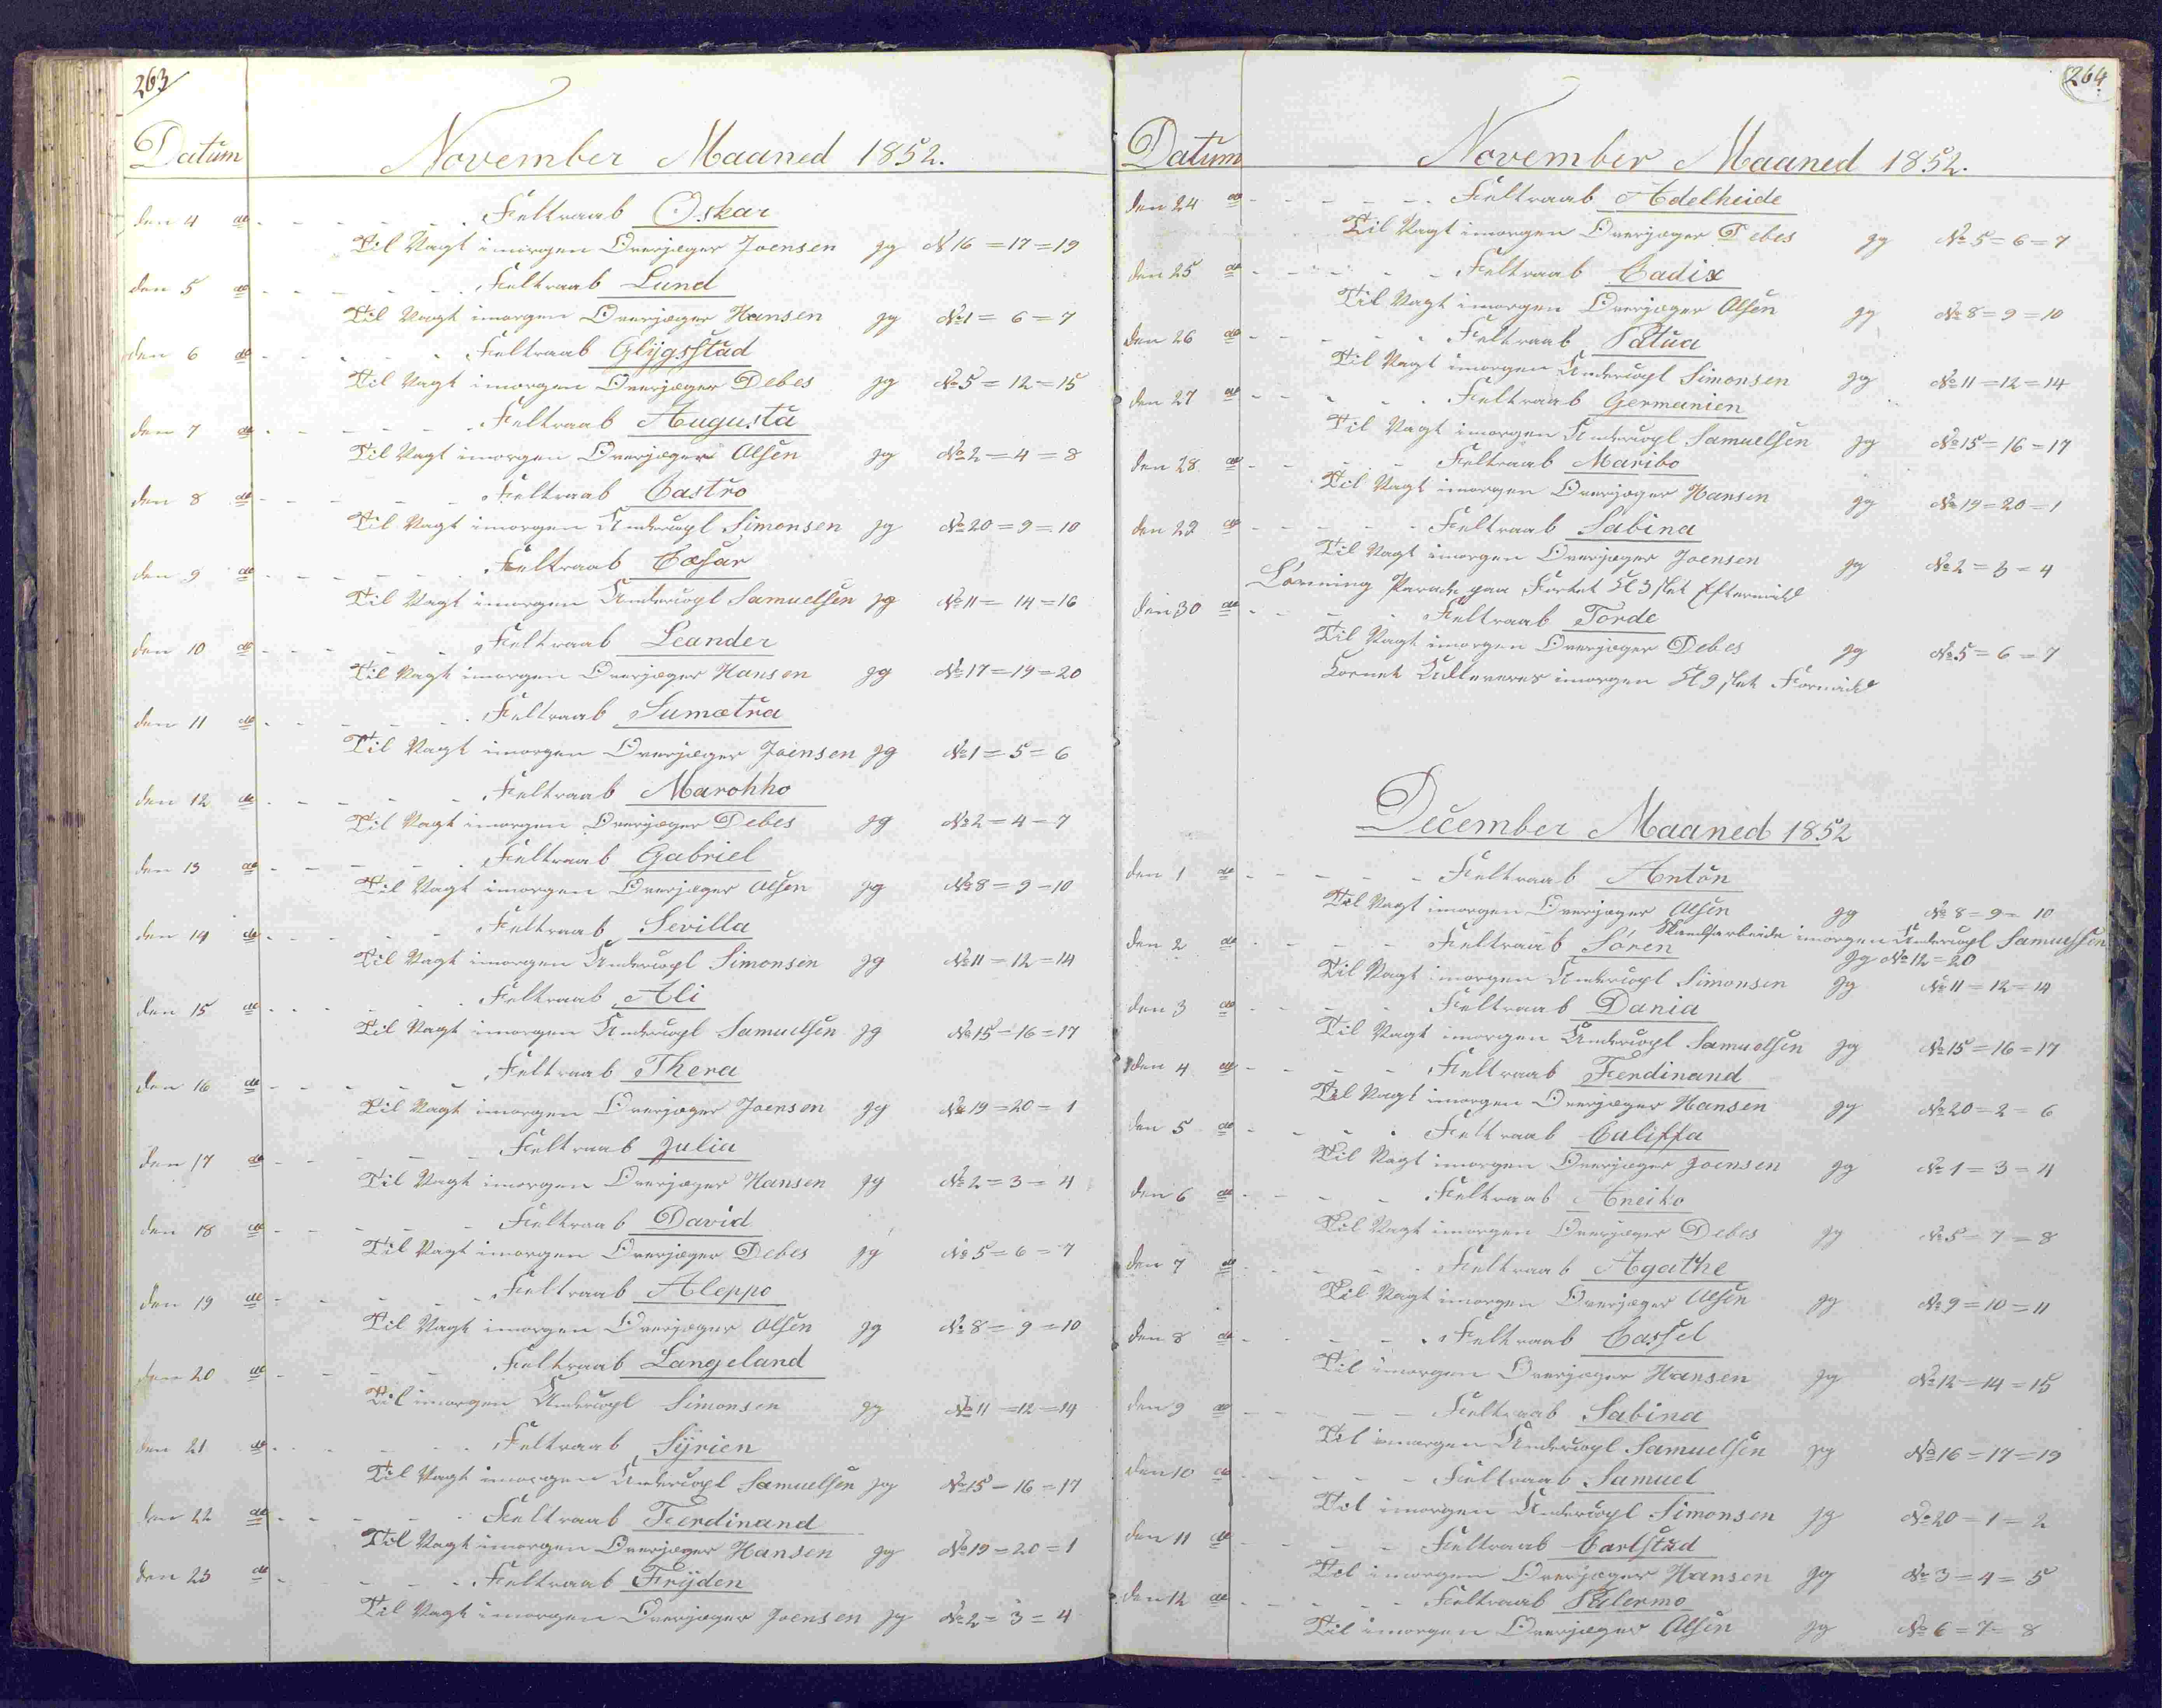 263
Datum November Maaned 1852.
den 4 do Feltraab Oskar
Til Vagt imorgen Overjæger Joensen Jg N 16 = 17 = 19
den 5 do Feltraab Lund
Til Vagt imorgen Overjæger Hansen Jg No 1 = 6 = 7
den 6 do Feltraab Glijgsstad
Til Vagt imorgen Overjæger Debes Jg No 5 = 12 = 15
den 7 do Feltraab Augusta
Til Vagt imorgen Overjæger Olsen Jg No 2 = 4 = 8
den 8 do Feltraab Castro
Til Vagt imorgen Undercopl Simonsen Jg No 20 = 9 = 10
den 9 do Feltraab Cæsar
Til Vagt imorgen Undercopl Samuelsen Jg No 11 = 14 = 16
den 10 do Feltraab Leander
Til Vagt imorgen Overjæger Hansen Jg No 17 = 19 = 20
den 11 do Feltraab Sumatra
Til Vagt imorgen Overjæger Joensen Jg No 1 = 5 = 6
den 12 do Feltraab Marokko
Til Vagt imorgen Overjæger Debes Jg No 2 = 4 = 7
den 13 do Feltraab Gabriel
Til Vagt imorgen Overjæger Olsen Jg No 8 = 9 = 10
den 14 do Feltraab Sevilla
Til Vagt imorgen Undercopl Simonsen Jg No 11 = 12 = 14
den 15 do Feltraab Ali
Til Vagt imorgen Undercopl Samuelsen Jg No 15 = 16 = 17
den 16 do Feltraab Thera
Til Vagt imorgen Overjæger Joensen Jg No 19 = 20 = 1
den 17 do Feltraab Julia
Til Vagt imorgen Overjæger Hansen Jg No 2 = 3 = 4
den 18 do Feltraab David
Til Vagt imorgen Overjæger Debes Jg No 5 = 6 = 7
den 19 do Feltraab Aleppo
Til Vagt imorgen Overjæger Olsen Jg No 8 = 9 = 10
den 20 do Feltraab Langeland
Til imorgen Undercopl Simonsen Jg No 11 = 12 = 14
den 21 do Feltraab Sÿrien
Til Vagt imorgen Undercopl Samuelsen Jg No 15 = 16 = 17
den 22 do Feltraab Ferdinand
Til Vagt imorgen Overjæger Hansen Jg No 19 = 20 = 1
den 23 do Feltraab Frijden
Til Vagt imorgen Overjæger Joensen Jg No 2 = 3 = 4
264
Datum November Maaned 1852.
den 24 do Feltraab Adelheide
Til Vagt imorgen Overjæger Debes Jg No 5 = 6 = 7
den 25 do Feltraab Cadix
Til Vagt imorgen Overjæger Olsen Jg No 8 = 9 = 10
den 26 do Feltraab Patua
Til Vagt imorgen Undercopl Simonsen Jg No 11 = 12 = 14
den 27 do Feltraab Germanien
Til Vagt imorgen Undercopl Samuelsen Jg No 15 = 16 = 17
den 28 do Feltraab Maribo
Til Vagt imorgen Overjæger Hansen Jg No 19 = 20 = 1
den 29 do Feltraab Sabina
Til Vagt imorgen Overjæger Joensen Jg No 2 = 3 = 4
Lønning Parade paa Fortet Kl 3 slet Eftermid
den 30 do Feltraab Torde
Til Vagt imorgen Overjæger Debes Jg No 5 = 6 = 7
Kornet Udleveres imorgen Kl 9 slet Formid
December Maaned 1852
den 1 do Feltraab Anton
Til Vagt imorgen Overjæger Olsen Jg No 8 = 9 = 10
Skandsarbeide imorgen Undercopl Samuelsen
den 2 do Feltraab Sören Jg No 12 = 20
Til Vagt imorgen Undercopl Simonsen Jg No 11 = 12 = 14
den 3 do Feltraab Dania
Til Vagt imorgen Undercopl Samuelsen Jg No 15 = 16 = 17
den 4 do Feltraab Ferdinand
Til Vagt imorgen Overjæger Hansen Jg No 20 = 2 = 6
den 5 do Feltraab Califfa
Til Vagt imorgen Overjæger Joensen Jg No 1 = 3 = 4
den 6 do Feltraab
Til Vagt imorgen Overjæger Debes Jg No 5 = 7 = 8
den 7 do Feltraab Agathe
Til Vagt imorgen Overjæger Olsen Jg No 9 = 10 = 11
den 8 do Feltraab Cassel
Til imorgen Overjæger Hansen Jg No 12 = 14 = 15
den 9 do Feltraab Sabina
Til imorgen Undercopl Samuelsen Jg No 16 = 17 = 19
den 10 do Feltraab Samuel
Til imorgen Undercopl Simonsen Jg No 20 = 1 = 2
den 11 do Feltraab Carlstad
Til imorgen Overjæger Hansen Jg No 3 = 4 = 5
den 12 do Feltraab Palermo
Til imorgen Overjæger Olsen Jg No 6 = 7 = 8